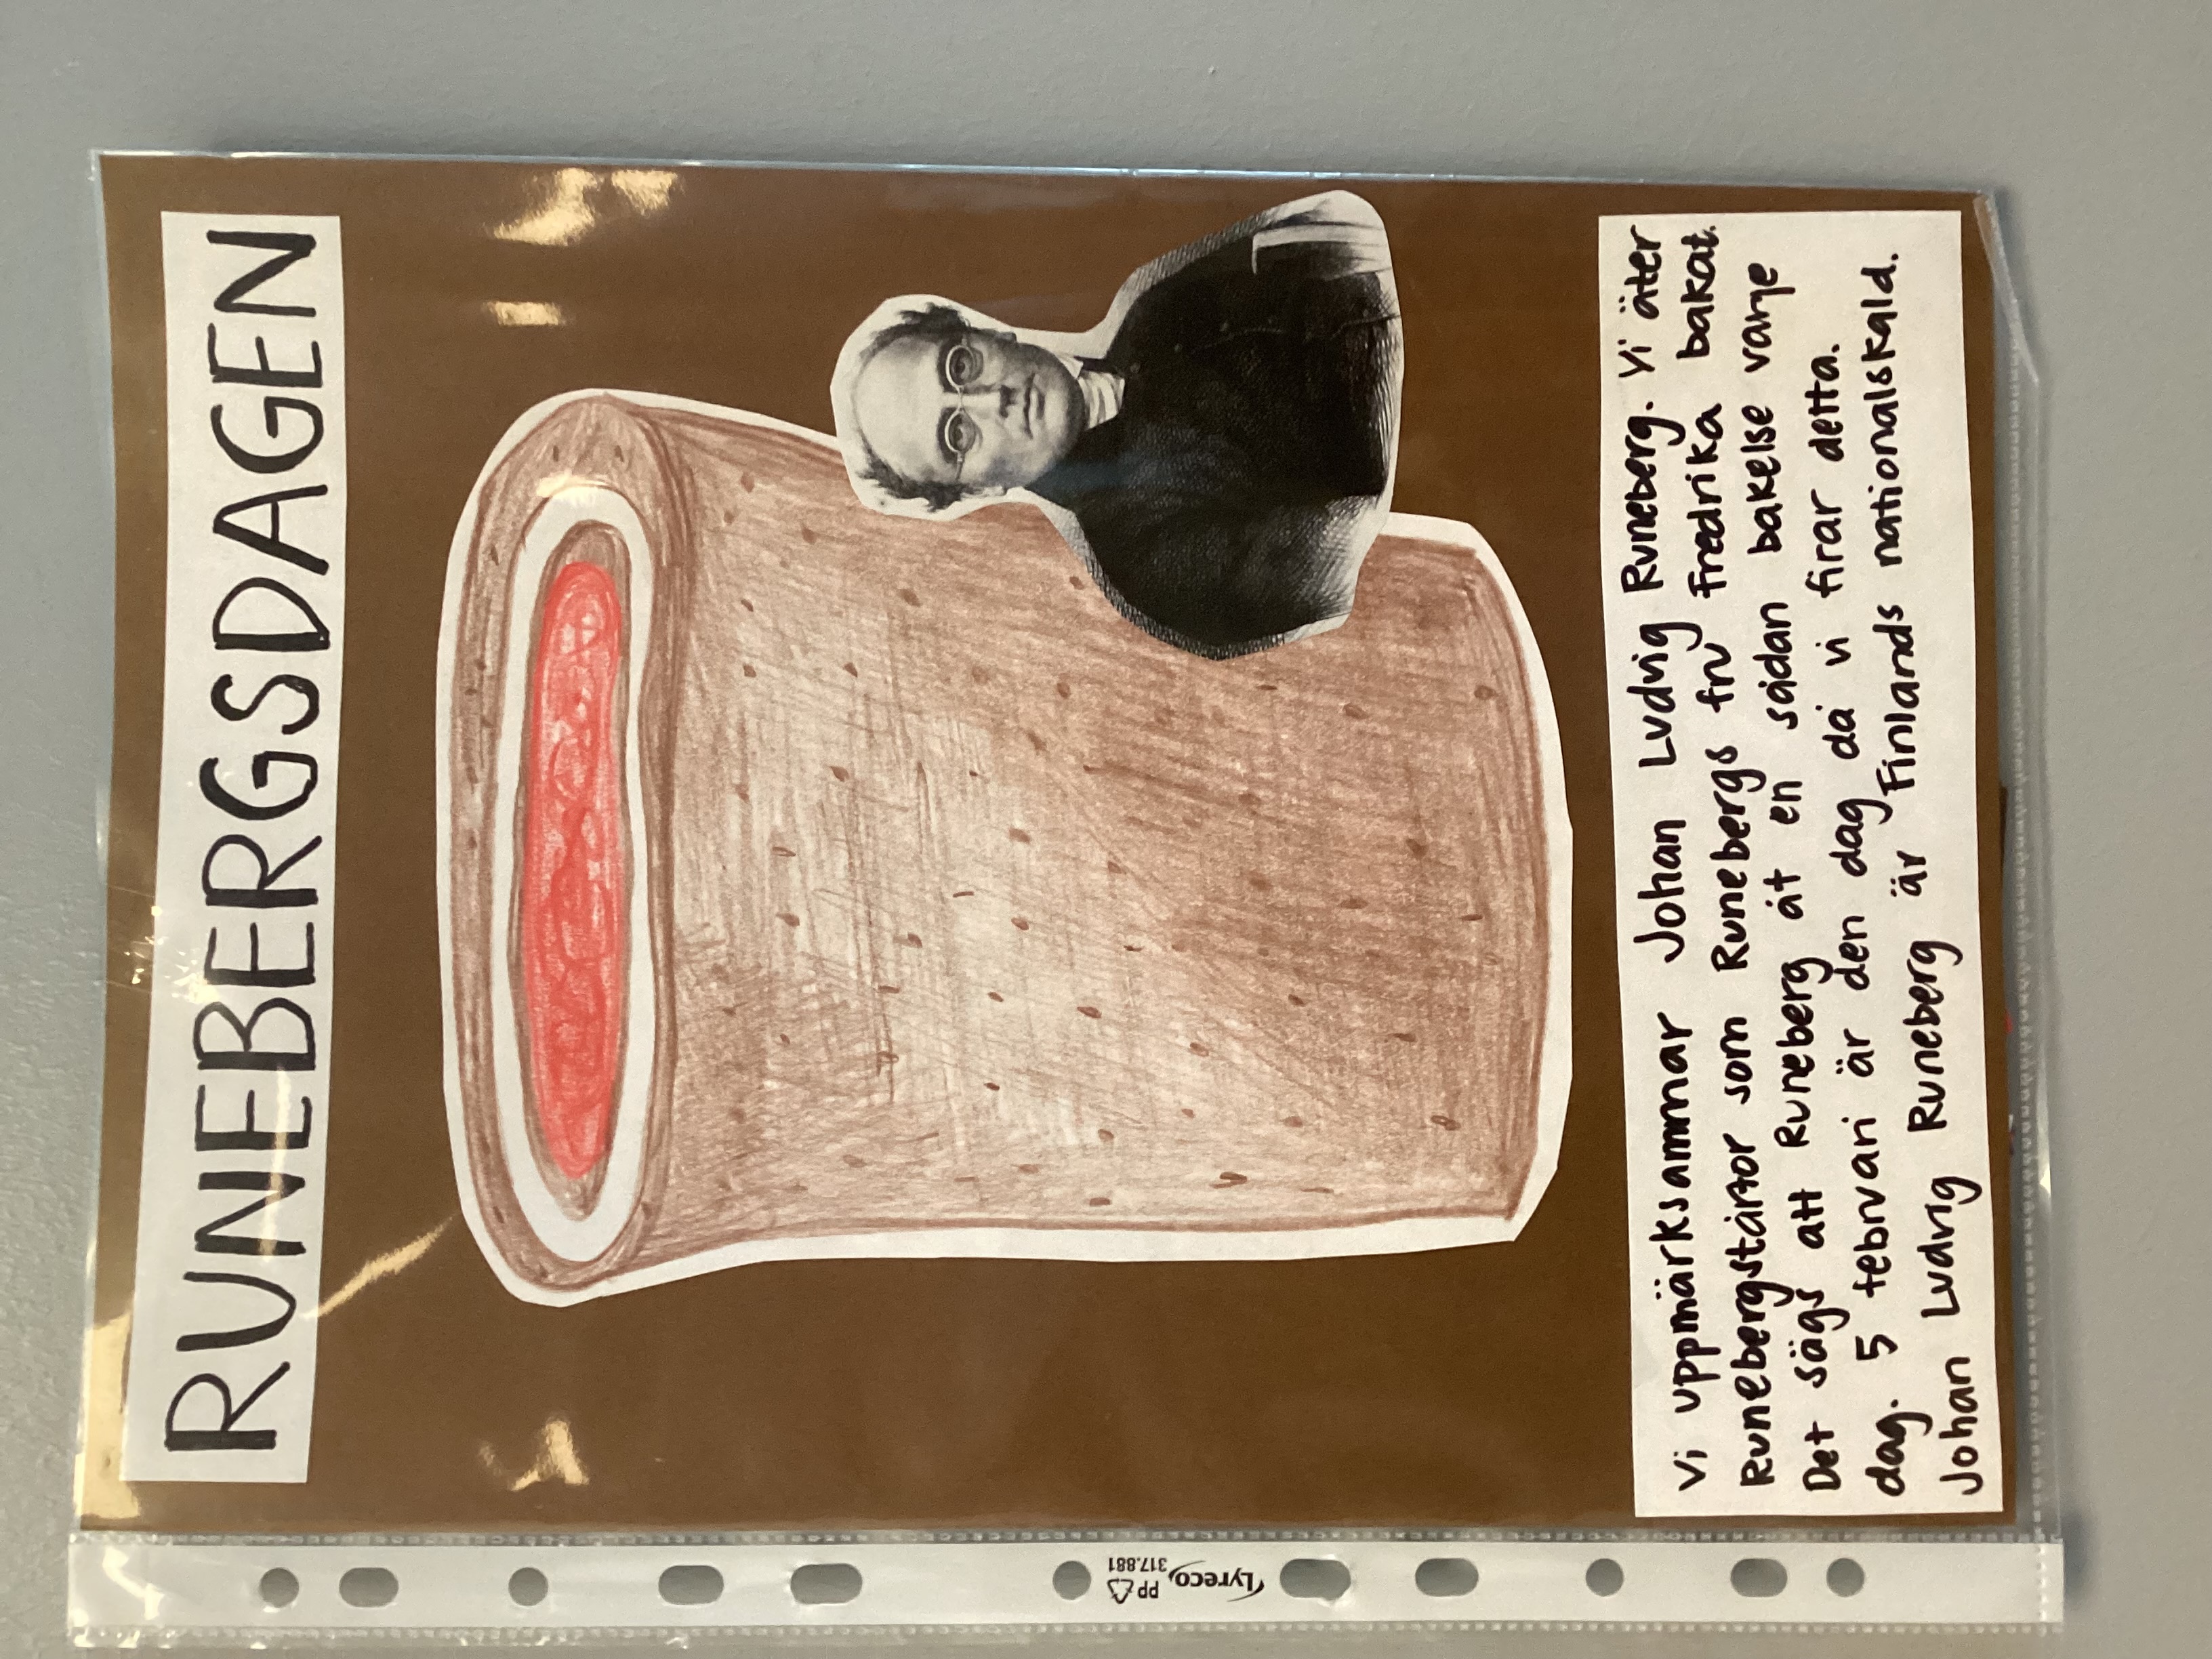 RUNEBERGSDAGEN
Vi uppmärksammar Johan Ludvig Runeberg. Vi äter
Runebergstårtor som Runebergs fru Fredrika bakat.
Det sägs att Runeberg åt en sådan bakelse varje
dag. 5 februari är den dag då vi firar detta.
Johan Ludvig Runeberg är Finlands nationalskald.
Lyreco
PP
317.881